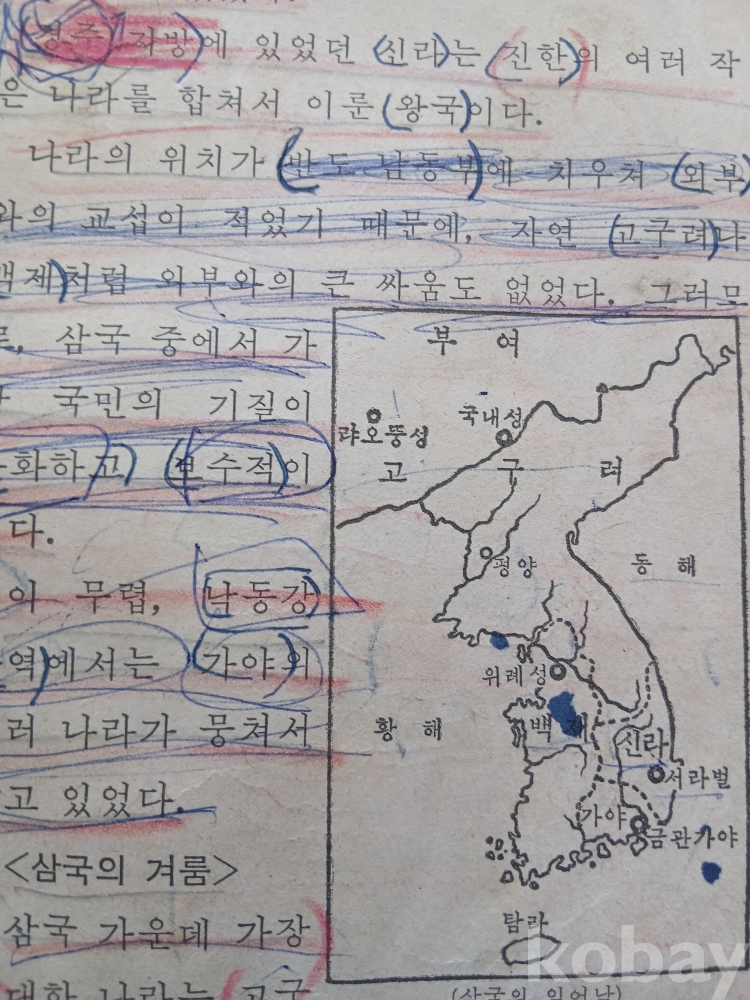 경주 지방에 있었던 (신라)는 (진한)의 여러 작
은 나라를 합쳐서 이룬 (왕국)이다.
나라의 위치가 (반도 남동부)에 치우쳐 (외부)
와의 교섭이 적었기 때문에, 자연 (고구려)나
백제)처럼 외부와의 큰 싸움도 없었다. 그러므
로, 삼국 중에서 가
국민의 기질이
화하고) (보수적)이
다.
이 무렵, 낙동강
역)에서는 (가야)의
러 나라가 뭉쳐서
고 있었다.
<삼국의 겨룸>
삼국 가운데 가장
대한 나라는 (고구
부 여
랴오뚱성
국내성
고 구 려
평양
동 해
위례성
황 해
백 제
신라
서라벌
가야
금관가야
탐라
(삼국의 일어남)
kobay